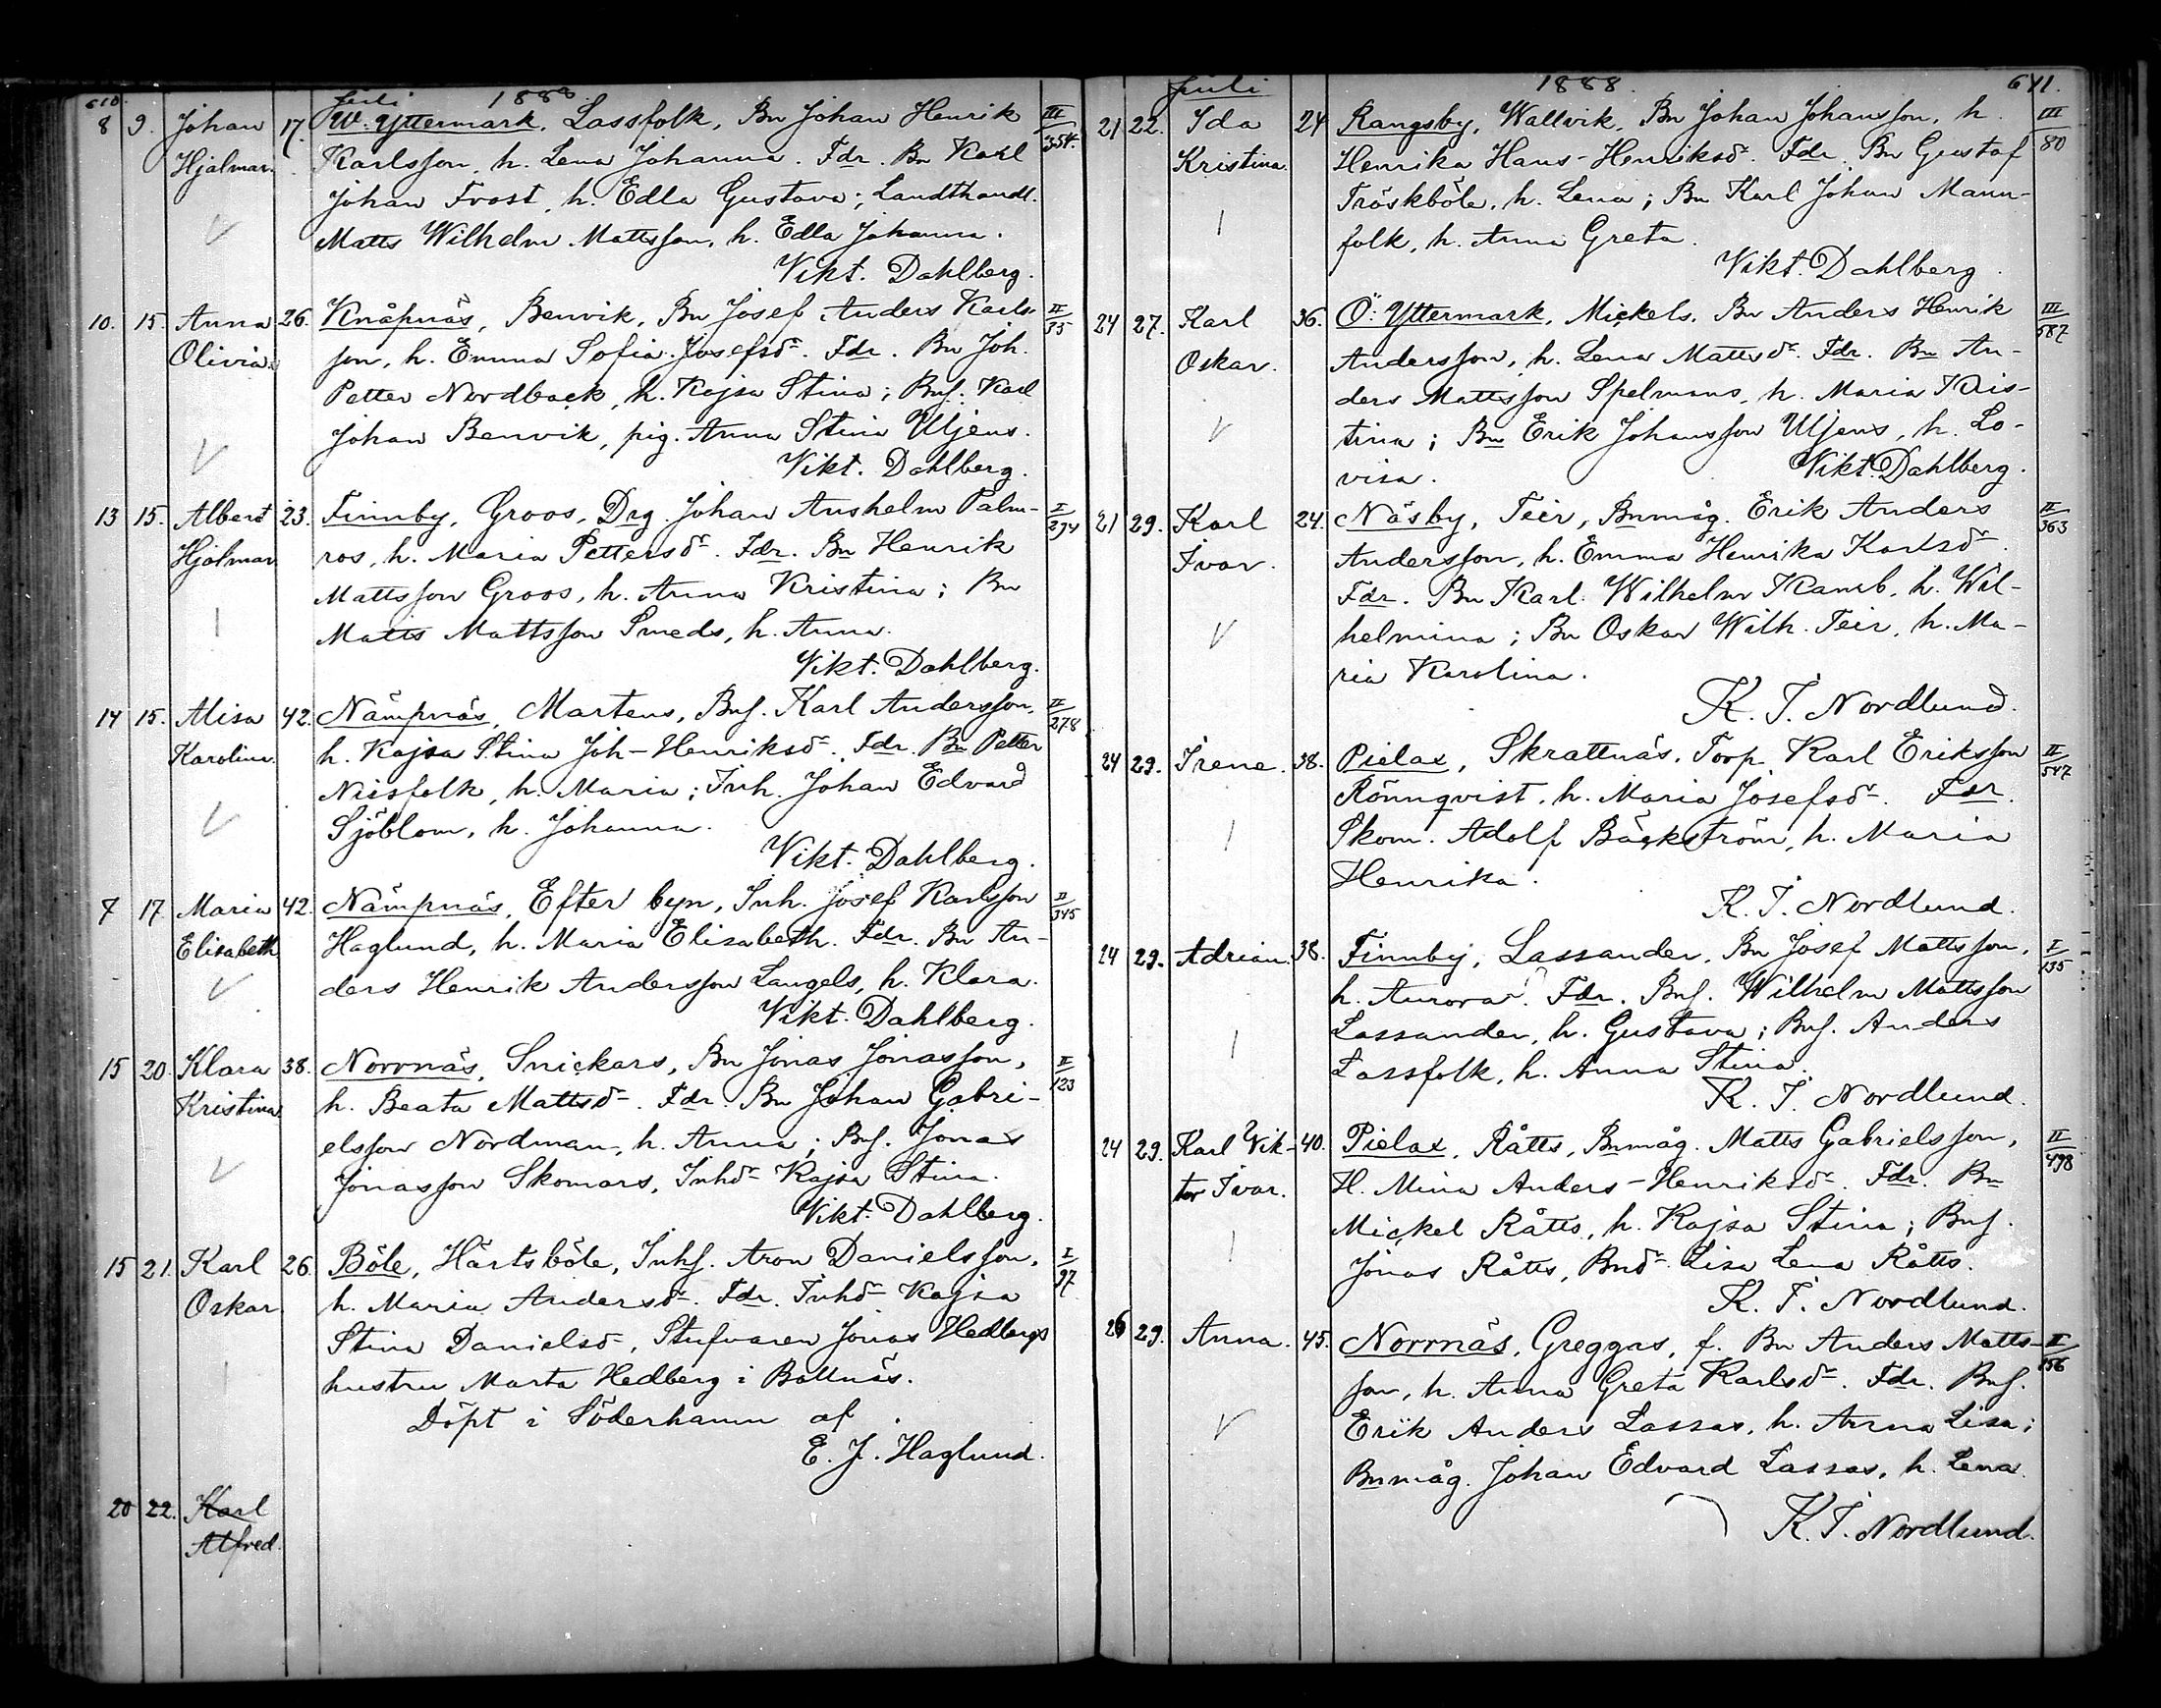 610. Juli 1888
8 9. Johan 17. W. Yttermark, Lassfolk, Bn Johan Henrik III/354.
Hjalmar. Karlsson, h. Lena Johanna. Fdr. Bn Karl
Johan Frost, h. Edla Gustava; Landthandl.
Matts Wilhelm Mattsson, h. Edla Johanna.
Vikt. Dahlberg.
10. 15. Anna 26. Knåpnäs, Benvik, Bn Josef Anders Karls- II/35
Olivia. son, h. Emma Sofia Josefsdr. Fdr. Bn Joh.
Petter Nordback, h. Kajsa Stina; Bns. Karl
Johan Benvik, pig. Anna Stina Uljens.
Vikt. Dahlberg.
13 15. Albert 23. Finnby, Groos, Drg. Johan Anshelm Palm- I/294
Hjalmar ros, h. Maria Pettersdr. Fdr. Bn Henrik
Mattsson Groos, h. Anna Kristina; Bn
Matts Mattsson Smeds, h. Anna.
Vikt. Dahlberg.
14 15. Alisa 42. Nämpnäs, Martens, Bns. Karl Andersson, II/278
Karolina. h. Kajsa Stina Joh-Henriksdr. Fdr. Bn Petter
Nissfolk, h. Maria; Inh. Johan Edvard
Sjöblom, h. Johanna.
Vikt. Dahlberg.
7 17 Maria 42. Nämpnäs, Efter byn, Inh. Josef Karlsson II/345
Elisabeth Haglund, h. Maria Elisabeth. Fdr. Bn An-
ders Henrik Andersson Langels, h. Klara.
Vikt. Dahlberg.
15 20. Klara 38. Norrnäs, Snickars, Bn Jonas Jonasson, II/123
Kristina h. Beata Mattsdr. Fdr. Bn Johan Gabri-
elsson Nordman, h. Anna; Bns. Jonas
Jonasson Skomars, Inhdr Kajsa Stina.
Vikt. Dahlberg.
15 21. Karl 26. Böle, Härtsböle, Inhs. Aron Danielsson, I/97
Oskar. h. Maria Andersdr. Fdr. Inhdr Kajsa
Stina Danielsdr, Stufvaren Jonas Hedbergs
hustru Marta Hedberg i Bollnäs.
Döpt i Söderhamn af
E. J. Haglund.
20 22. Karl
Alfred.
Juli 1888. 611.
21 22. Ida 24 Rangsby, Wallvik, Bn Johan Johansson, h. III/80
Kristina. Henrika Hans-Henriksdr. Fdr. Bn Gustaf
Träskböle, h. Lena; Bn Karl Johan Mann-
folk, h. Anna Greta.
Vikt. Dahlberg.
24 27. Karl 36. Ö. Yttermark, Mickels, Bn Anders Henrik III/587
Oskar. Andersson, h. Lena Mattsdr. Fdr. Bn An-
ders Mattsson Spelmans, h. Maria Kris-
tina; Bn Erik Johansson Uljens, h. Lo-
visa. Vikt. Dahlberg.
21 29. Karl 24. Näsby, Teir, Bnmåg. Erik Anders II/363
Ivar. Andersson, h. Emma Henrika Karlsdr.
Fdr. Bn Karl Wilhelm Kamb, h. Wil-
helmina; Bn Oskar Wilh. Teir, h. Ma-
ria Karolina.
K. I. Nordlund.
24 29. Irene. 38. Pielax, Skrattnäs, Torp. Karl Eriksson II/547
Rönnqvist, h. Maria Josefsdr. Fdr.
Skom. Adolf Bäckström, h. Maria
Henrika.
K. I. Nordlund.
24 29. Adrian. 38. Finnby, Lassander, Bn Josef Mattsson, I/135
h. Aurora. Fdr. Bns. Wilhelm Mattsson
Lassander, h. Gustava; Bns. Anders
Lassfolk, h. Anna Stina.
K. I. Nordlund.
24 29. Karl Vik- 40. Pielax, Råtts, Bnmåg. Matts Gabrielsson, II/498
tor Ivar. H. Mina Anders-Henriksdr. Fdr. Bn
Mickel Råtts, h. Kajsa Stina; Bns.
Jonas Råtts, Bndr Lisa Lena Råtts.
K. I. Nordlund.
26 29. Anna. 45. Norrnäs, Greggas, f. Bn Anders Matts- II/156
son, h. Anna Greta Karlsdr. Fdr. Bns.
Erik Anders Lassas, h. Anna Lisa;
Bnmåg. Johan Edvard Lassas, h. Lena.
K. I. Nordlund.